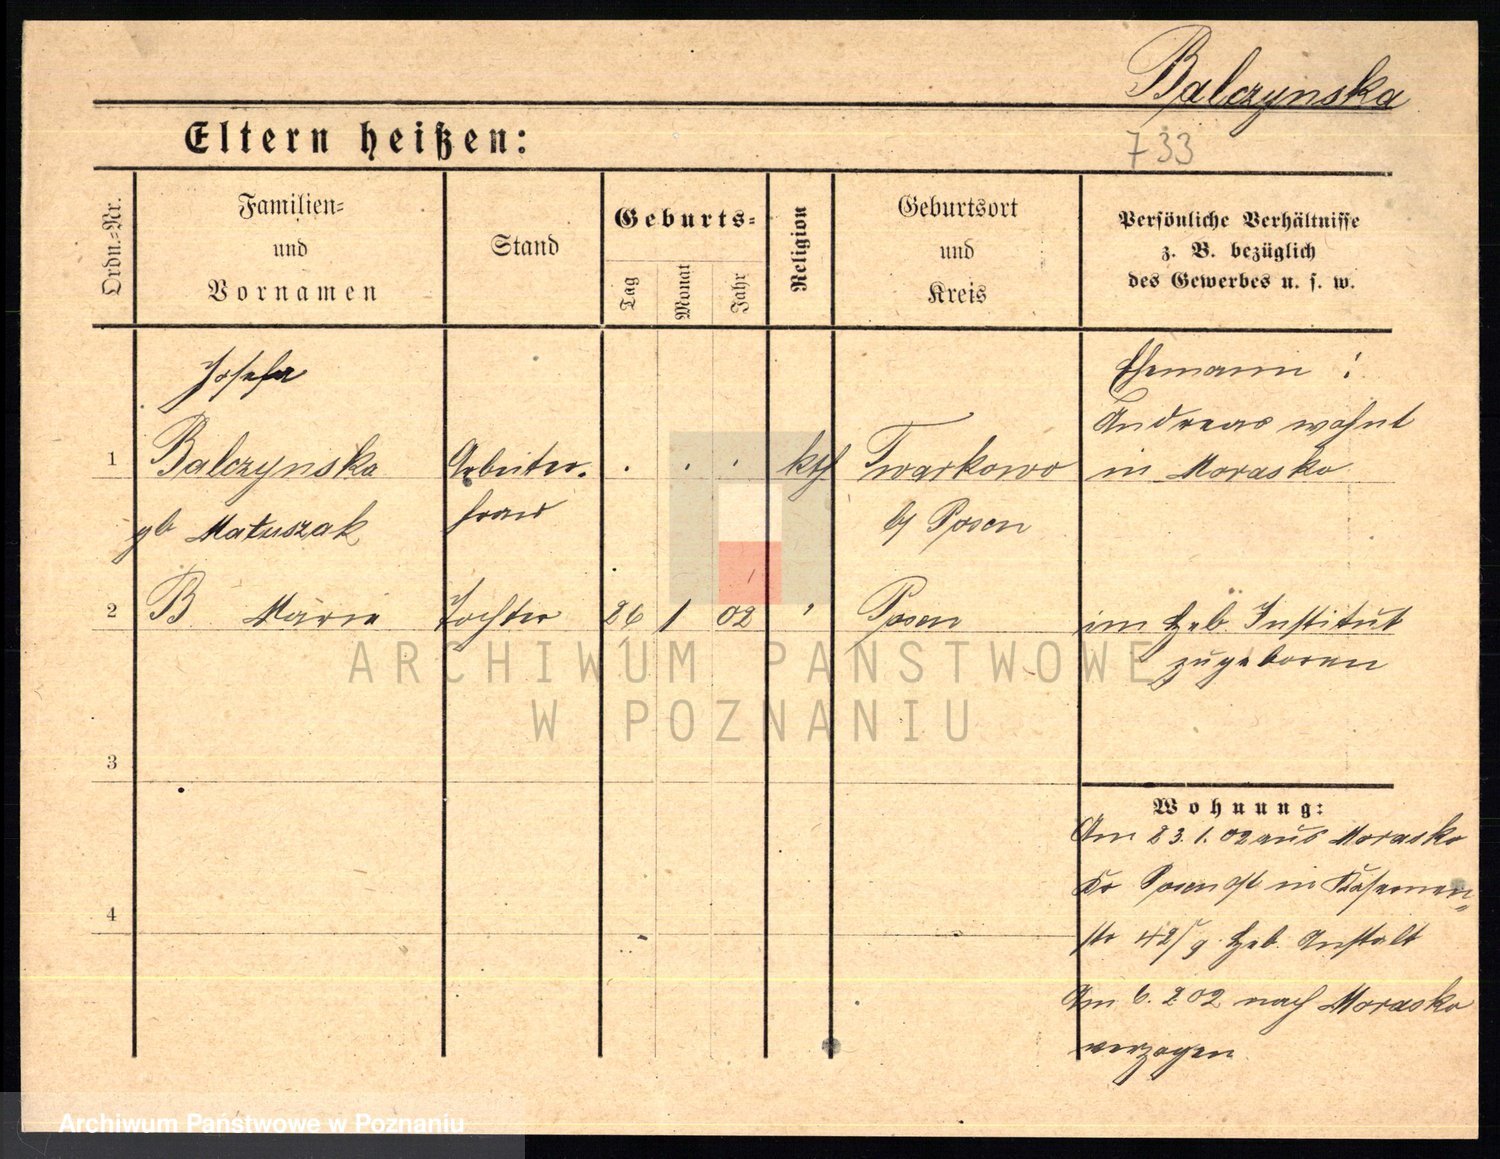 Balczynska
Eltern heißen:
733
Ordn.-Nr.
Familien-
und
Vornamen
Stand
Geburts-
Tag
Monat
Jahr
Religion
Geburtsort
und
Kreis
Persönliche Verhältnisse
z. B. bezüglich
des Gewerbes u. s. w.
Josefa
Ehemann :
Andreas wohnt
1 Balczynska Arbeiter- . . . kth Twarkowo in Morasko
gb Matuszak frau b/ Posen
2 B Marie Tochter 26 1 02 " Posen im Heb. Institut
zugeboren
ARCHIWUM PAŃSTWOWE
W POZNANIU
3
Wohnung:
Am 23.1.02 aus Morasko
Kr Posen Ost in Kasernen-
4
str 42/ g. Heb. Anstalt
Am 6.2 02 nach Morasko
verzogen
Archiwum Państwowe w Poznaniu